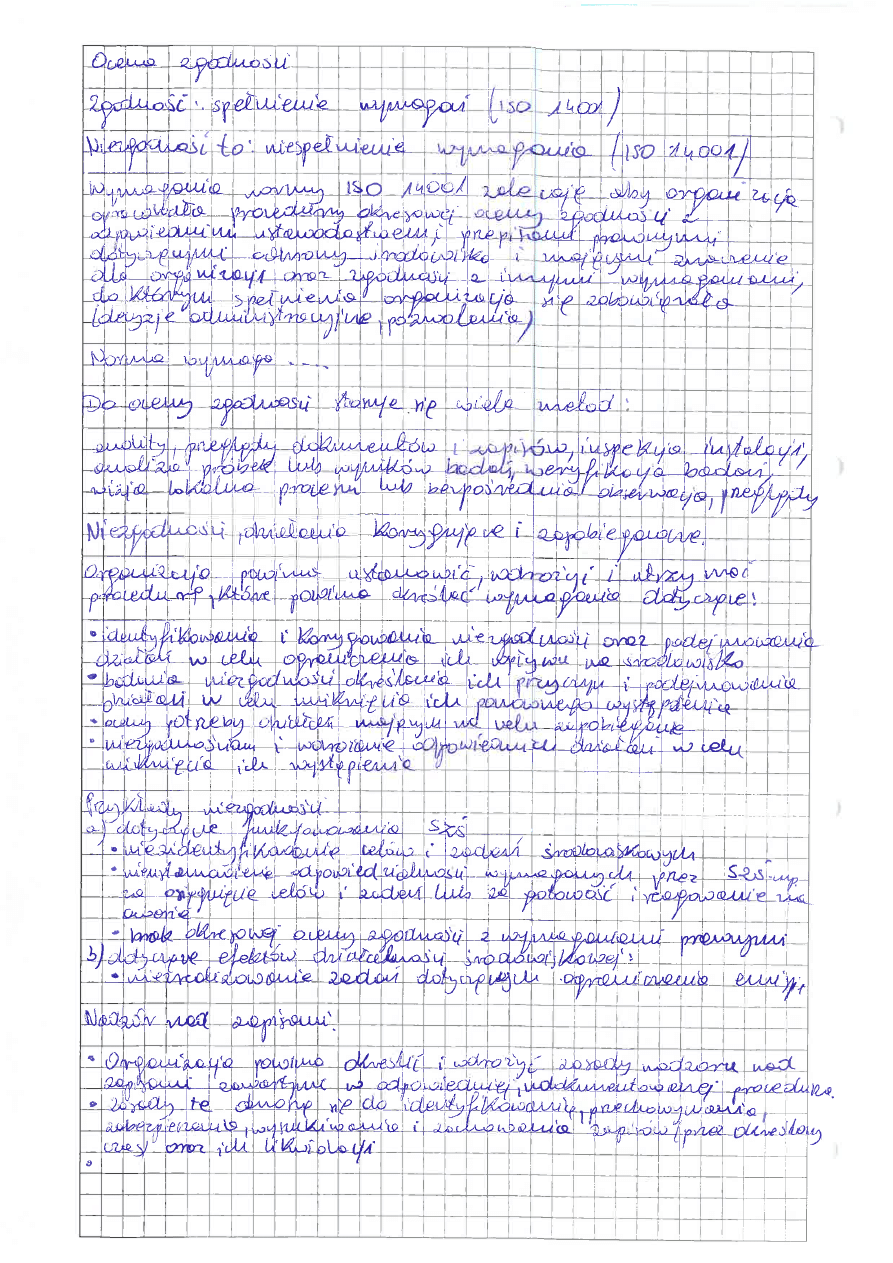 Ocena zgodności
Zgodność: spełnienie wymagań (ISO 14001)
Niezgodność to: niespełnienie wymagania (ISO 14001)
Wymagania normy ISO 14001 zalecają aby organizacja
opracowała procedury okresowej oceny zgodności z
odpowiednimi ustawodastwem, przepisami prawnymi
dotyczącymi ochrony środowiska i mającymi znaczenie
dla organizacji oraz zgodności z innymi wymaganiami,
do którym spełnienia organizacja się zobowiązała
(decyzje administracyjne, pozwolenia)
Norma wymaga ....
Do oceny zgodności stosuje się wiele metod:
audity, przeglądy dokumentów i zapisów, inspekcja instalacji,
analiza próbek lub wyników badań, weryfikacja badań,
wizja lokalna procesu lub bezpośrednia obserwacja, przeglądy
Niezgodności, działania korygujące i zapobiegawcze.
Organizacja powinna ustanowić, wdrożyć i utrzymać
procedurę, które powinna określać wymagania dotyczące:
• identyfikowania i korygowania niezgodności oraz podejmowania
działań w celu ograniczenia ich wpływu na środowisko
• badania niezgodności określania ich przyczyn i podejmowania
działań w celu uniknięcia ich ponownego wystąpienia
• oceny potrzeby działań mających na celu zapobieganie
• niezgodnościom i wdrożenie odpowiednich działań w celu
uniknięcia ich wystąpienia
Przykłady niezgodności
a) dotyczące funkcjonowania SZŚ
• niezidentyfikowanie celów i zadań środowiskowych
• nieustanowienie odpowiedzialności wymaganych przez SZŚ np.
za osiągnięcie celów i zadań lub za gotowość i reagowanie na
awarie
• brak okresowej oceny zgodności z wymaganiami prawnymi
b) dotyczące efektów działalności środowiskowej:
• niezrealizowanie zadań dotyczących ograniczenia emisji
Nadzór nad zapisami:
• Organizacja powinna określić i wdrożyć zasady nadzoru nad
zapisami zawartymi w odpowiedniej, uddokumentowanej procedurze.
• zasady te odnoszą się do identyfikowania, przechowywania,
zabezpieczania, wyszukiwania i zachowania zapisów przez określony
czas oraz ich likwidacji
•